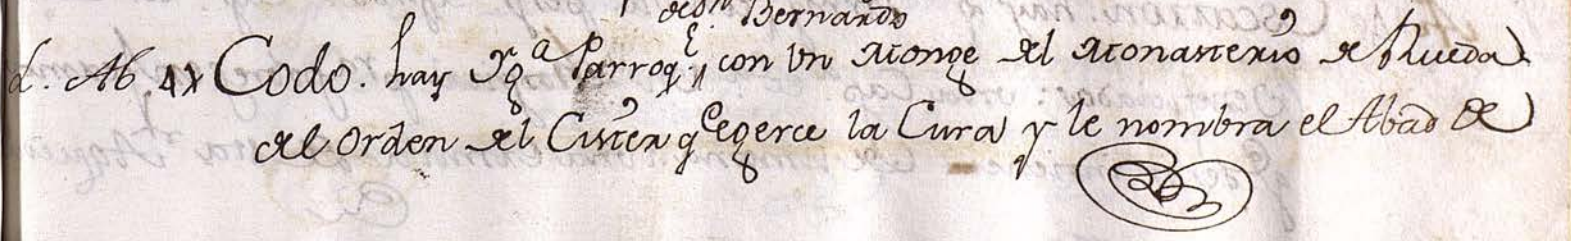 de Sn. Bernardo
L. Ab. 41 Codo. hay Yga. Parroql. con un Monge del Monasterio de Rueda
del Orden del Cister qe egerce la Cura y le nombra el Abad de